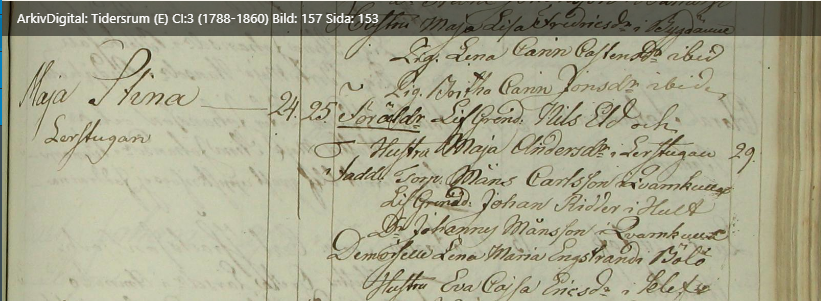 ArkivDigital: Tidersrum (E) CI:3 (1788-1860) Bild: 157 Sida: 153
Hustru Maja Lisa Fredricsdr i
Pig. Lena Carin Castensdr ibid
Pig. Britha Carin Jonsdr ibid.
Maja Stina 24. 25. Föräldr. LifGrend. Nils Eld och
Lerstugan
Hustru Maja Andersdr i Lerstugan 29.
Fadd. Torp. Måns Carlsson i Qvarnkullen
LifGrend: Johan Ridder i Hult
Dr. Johannes Månsson i Qvarnkullen
Demoiselle Lena Maria Engstrand i Bölö
Hustru Eva Cajsa Ericsdr i